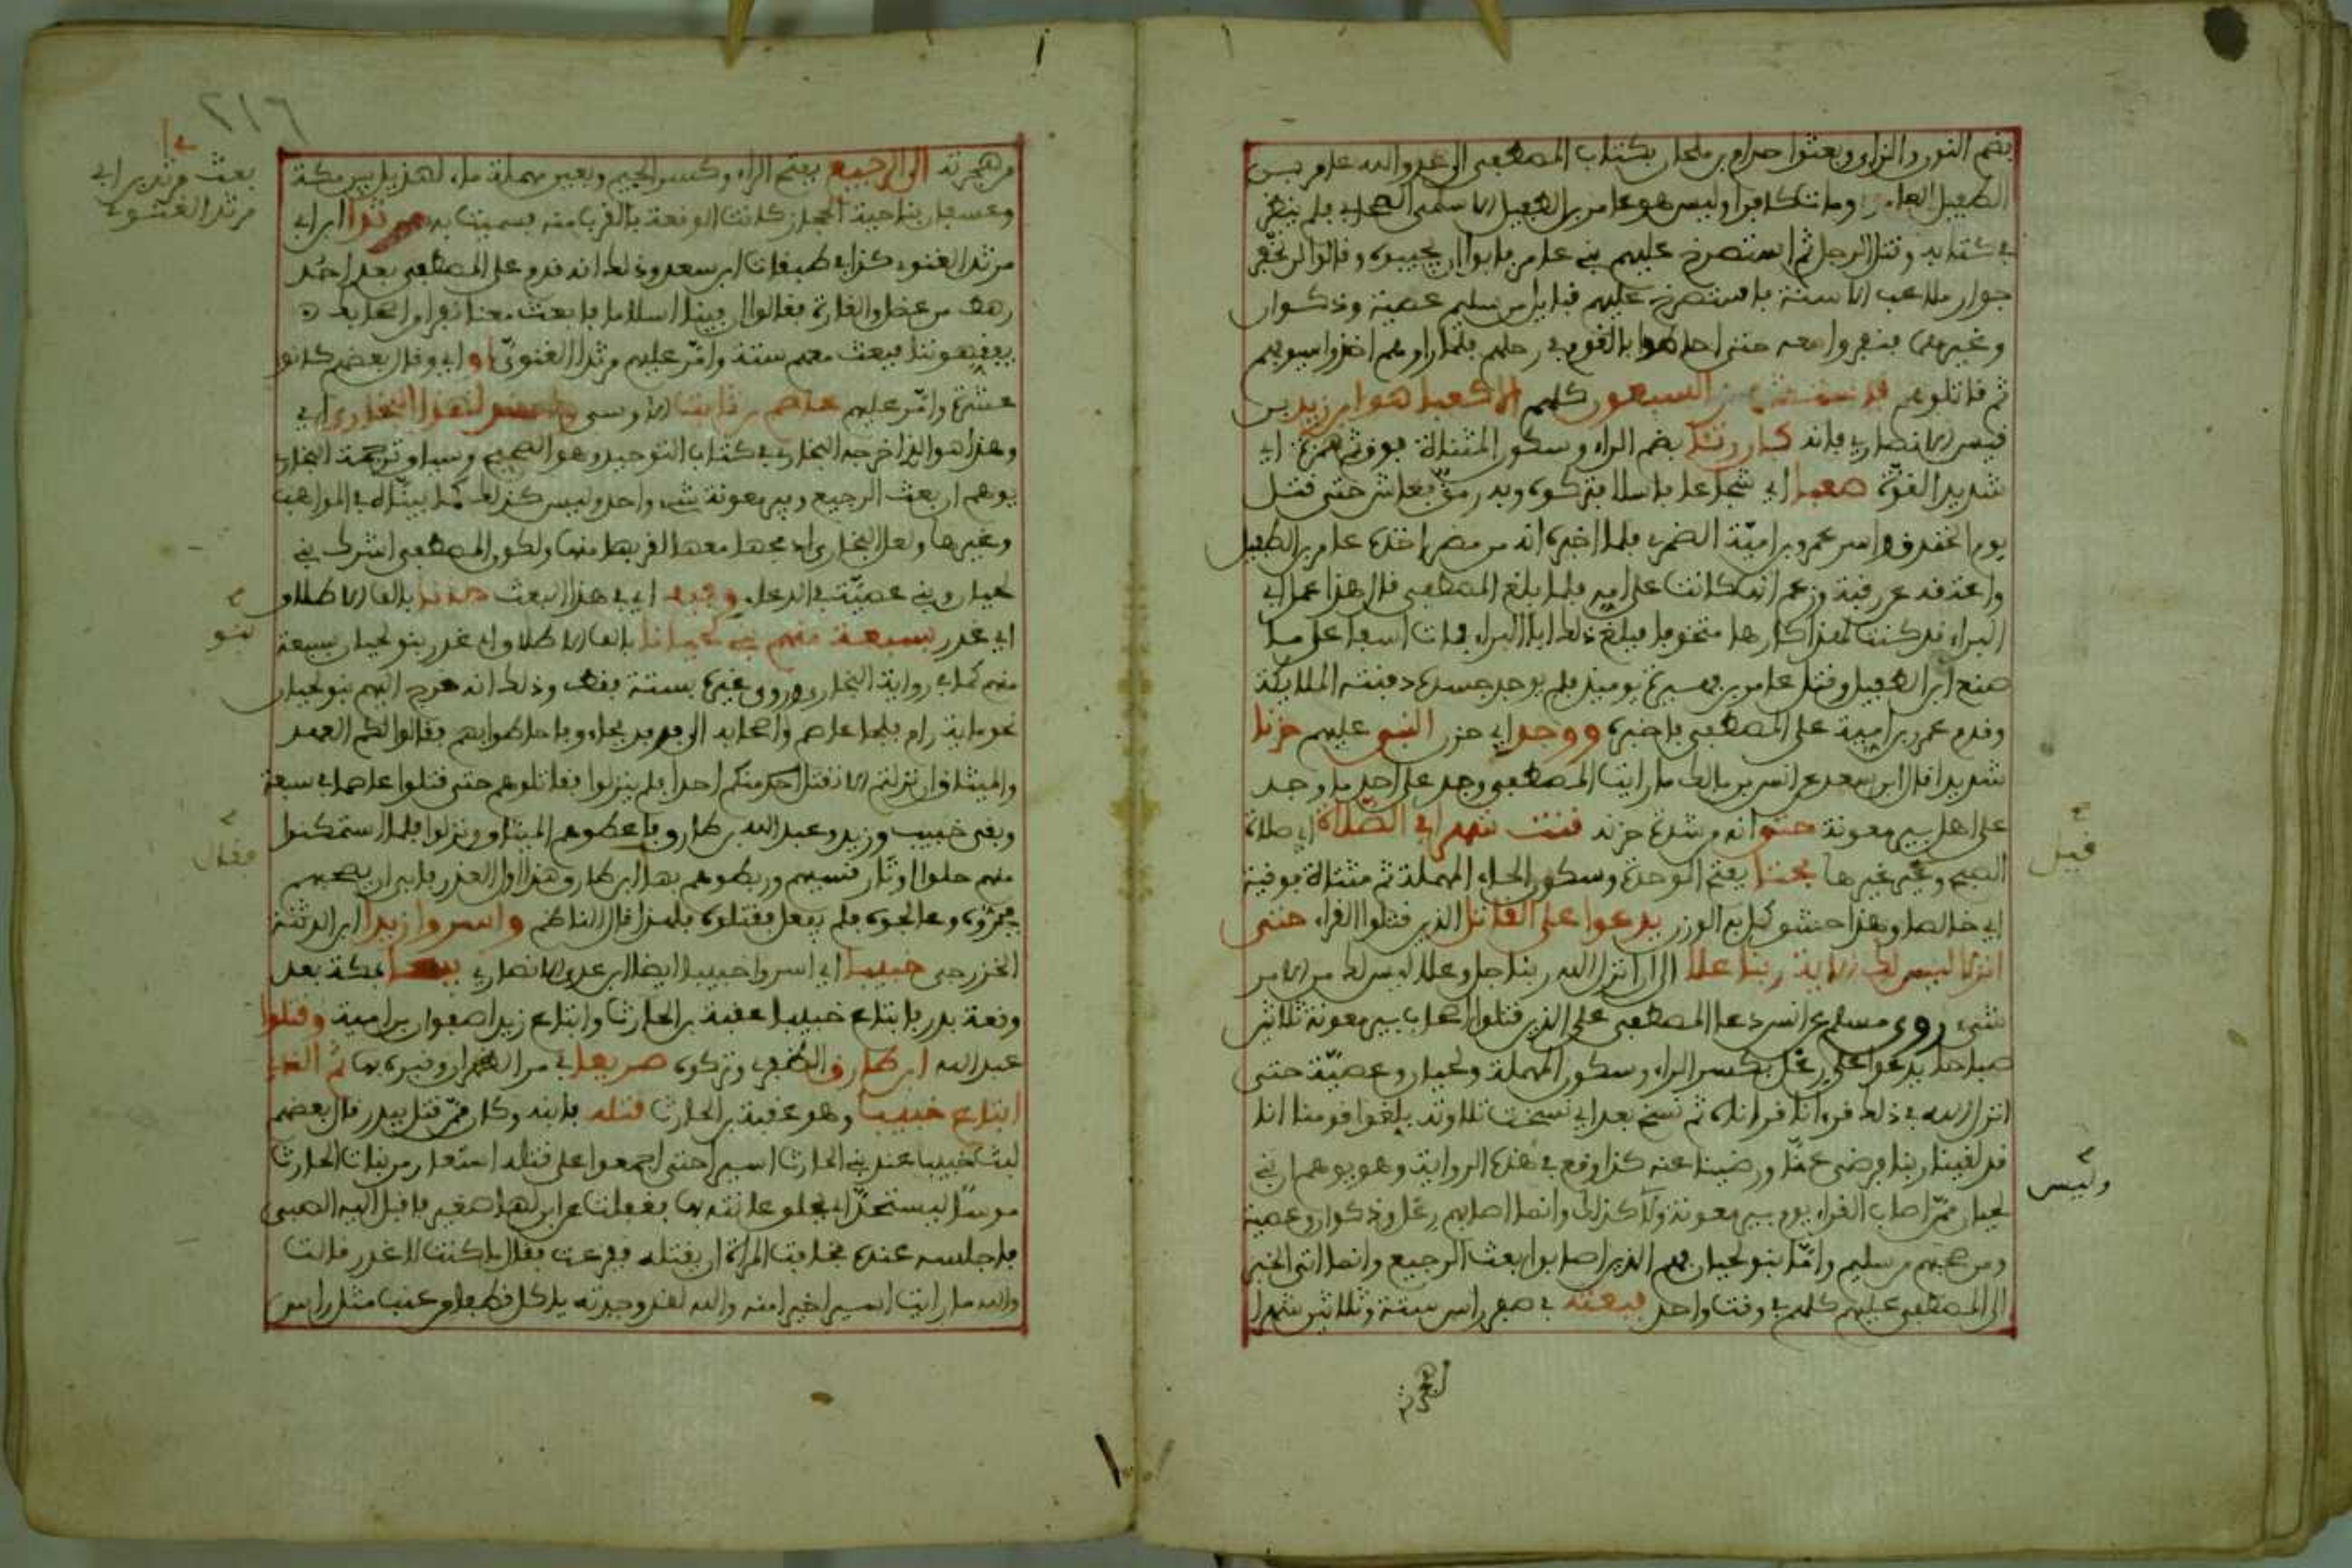 بضم النون والزاي وبعثوا حرام بن ملحان بكتاب المصطفى الى عدو الله عامر بن
الطفيل العامري ومات كافرا وليس هو عامر بن الطفيل الاسلمي الصحابي فلم ينظر
في كتابه وقتل الرجل ثم استصرخ عليهم بني عامر فابوا ان يجيبوه وقالوا لن نخفر
جوار ملاعب الاسنة فاستصرخ عليهم قبايل من سليم عصية وذكوان
وغيرهما فنفروا معه حتى احاطوا بالقوم في رحالهم فلما راوهم اخذوا سيوفهم
ثم قاتلوهم فاستشهد السبعون كلهم الا كعبا هو ابن زيد بن
قيس الانصاري فانه كان رثا بضم الراء وسكون المثناة فوق ثم همزة اي
شديد القوة صعبا اي شجاعا باسلا فتركوه وبه رمق فعاش حتى قتل
يوم الخندق واسر عمرو بن امية الضمري فلما اخبره انه من مضر اخذه عامر بن الطفيل
واعتقه عن رقبة وزعم انها كانت على امه فلما بلغ المصطفى قال هذا عمل ابي
البراء قد كنت لهذا كارها متخوفا فبلغ ذلك ابا البراء فمات اسفا على ما
صنع ابن الطفيل وقتل عامر بن فهيرة يوميذ فلم يوجد جسده دفنته الملايكة
وقدم عمرو بن امية على المصطفى فاخبره ووجد اي حزن النبي عليهم حزنا
شديدا قال ابن سعد عن انس بن مالك ما رايت المصطفى وجد على احد ما وجد
على اهل بير معونة حتى انه من شدة حزنه قنت شهرا في الصلاة اي صلاة
الصبح وغيرها بحتا بفتح الموحدة وسكون الحاء المهملة ثم مثناة فوقية
اي خالصا وهذا حشو كمل به الوزن يدعوا على القاتل الذين قتلوا القراء حتى
انزلا ليس لك الاية ربنا علا الى ان انزل الله ربنا جل وعلا ليس لك من الامر
شيء روى مسلم عن انس دعا المصطفى على الذين قتلوا اصحاب بير معونة ثلاثين
صباحا يدعوا على رعل بكسر الراء وسكون المهملة ولحيان وعصية حتى
انزل الله في ذلك قرءانا قراناه ثم نسخ بعد اي نسخت تلاوته بلغوا قومنا انا
قد لقينا ربنا فرضي عنا ورضينا عنه كذا وقع في هذه الرواية وهو يوهم ان بني
لحيان ممن اصاب القراء يوم بير معونة ولا كذلك وانما اصابهم رعل وذكوان وعصية
ومن صحبهم من سليم واما بنو لحيان فهم الذين اصابوا بعث الرجيع وانما اتى الخبر
الى المصطفى عليهم كلهم في وقت واحد فبعثه في صفر راس ستة وثلاثين شهرا
قيل
وليس
من هجرته
من هجرته الى الرجيع بفتح الراء وكسر الجيم وبعين مهملة ماء لهذيل بين مكة
وعسفان بناحية الحجاز كانت الوقعة بالقرب منه فسميت به مرثدا ابن ابي
مرثد الغنوي كذا في طبقات ابن سعد وذلك انه قدم على المصطفى بعد احد
رهط من عضل والقارة فقالوا ان فينا اسلاما فابعث معنا نفرا من اصحابك
يفقهوننا فبعث معهم ستة وامر عليهم مرثدا الغنوي او اي وقال بعضهم كانوا
عشرة وامر عليهم عاصم بن ثابت الاوسي
وهذا هو الذي اخرجه البخاري في كتاب التوحيد وهو الصحيح وسياق ترجمة البخاري
يوهم ان بعث الرجيع وبير معونة شيء واحد وليس كذلك كما بيناه في المواهب
وغيرها ولعل البخاري ادمجها معها لقربها منها ولكون المصطفى اشرك بني
لحيان وبني عصية في الدعاء وفيه اي في هذا البعث بالف الاطلاق
اي غدر بسبعة منهم بني لحيانا بالف الاطلاق اي غدر بنو لحيان بسبعة
منهم كما في رواية البخاري وروى غيره بستة فقط وذلك انه خرج اليهم بنو لحيان
نحو ماية رام فلجا عاصم واصحابه الى فدفد فجاءوا فاحاطوا بهم فقالوا لكم العهد
والميثاق ان نزلتم الا نقتل منكم احدا فلم ينزلوا فقاتلوهم حتى قتلوا عاصما في سبعة
وبقي خبيب وزيد وعبد الله بن طارق فاعطوهم الميثاق ونزلوا فلما استمكنوا
منهم حلوا اوتار قسيهم وربطوهم بها ابن طارق هذا اول الغدر فابى ان يصحبهم
فجروه وعالجوه فلم يفعل فقتلوه فلهذا قال الناظم واسروا زيدا ابن الدثنة
الخزرجي خبيبا اي اسروا خبيبا ايضا ابن عدي الانصاري بمكة بعد
وقعة بدر فابتاع خبيبا عقبة بن الحارث وابتاع زيدا صفوان بن امية وقتلوا
عبد الله ابن طارق الظفري وتركوه صريعا في مر الظهران وقبره بها ثم الذي
ابتاع خبيبا وهو عقبة بن الحارث قتله بابيه وكان ممن قتل ببدر قال بعضهم
لبث خبيب عند بني الحارث اسيرا حتى اجمعوا على قتله استعار من بنات الحارث
موسا ليستحد اي يحلق عانته بها فغفلت عن ابن لها صغير فاقبل اليه الصبي
فاجلسه عنده فخافت المراة ان يقتله ففزعت فقال ما كنت لاغدر قالت
والله ما رايت اسيرا خيرا منه والله لقد وجدته ياكل قطفا من عنب مثل راس
٢١٦
بعث مرثد بن ابي
مرثد الغنوي
بنو
فقال